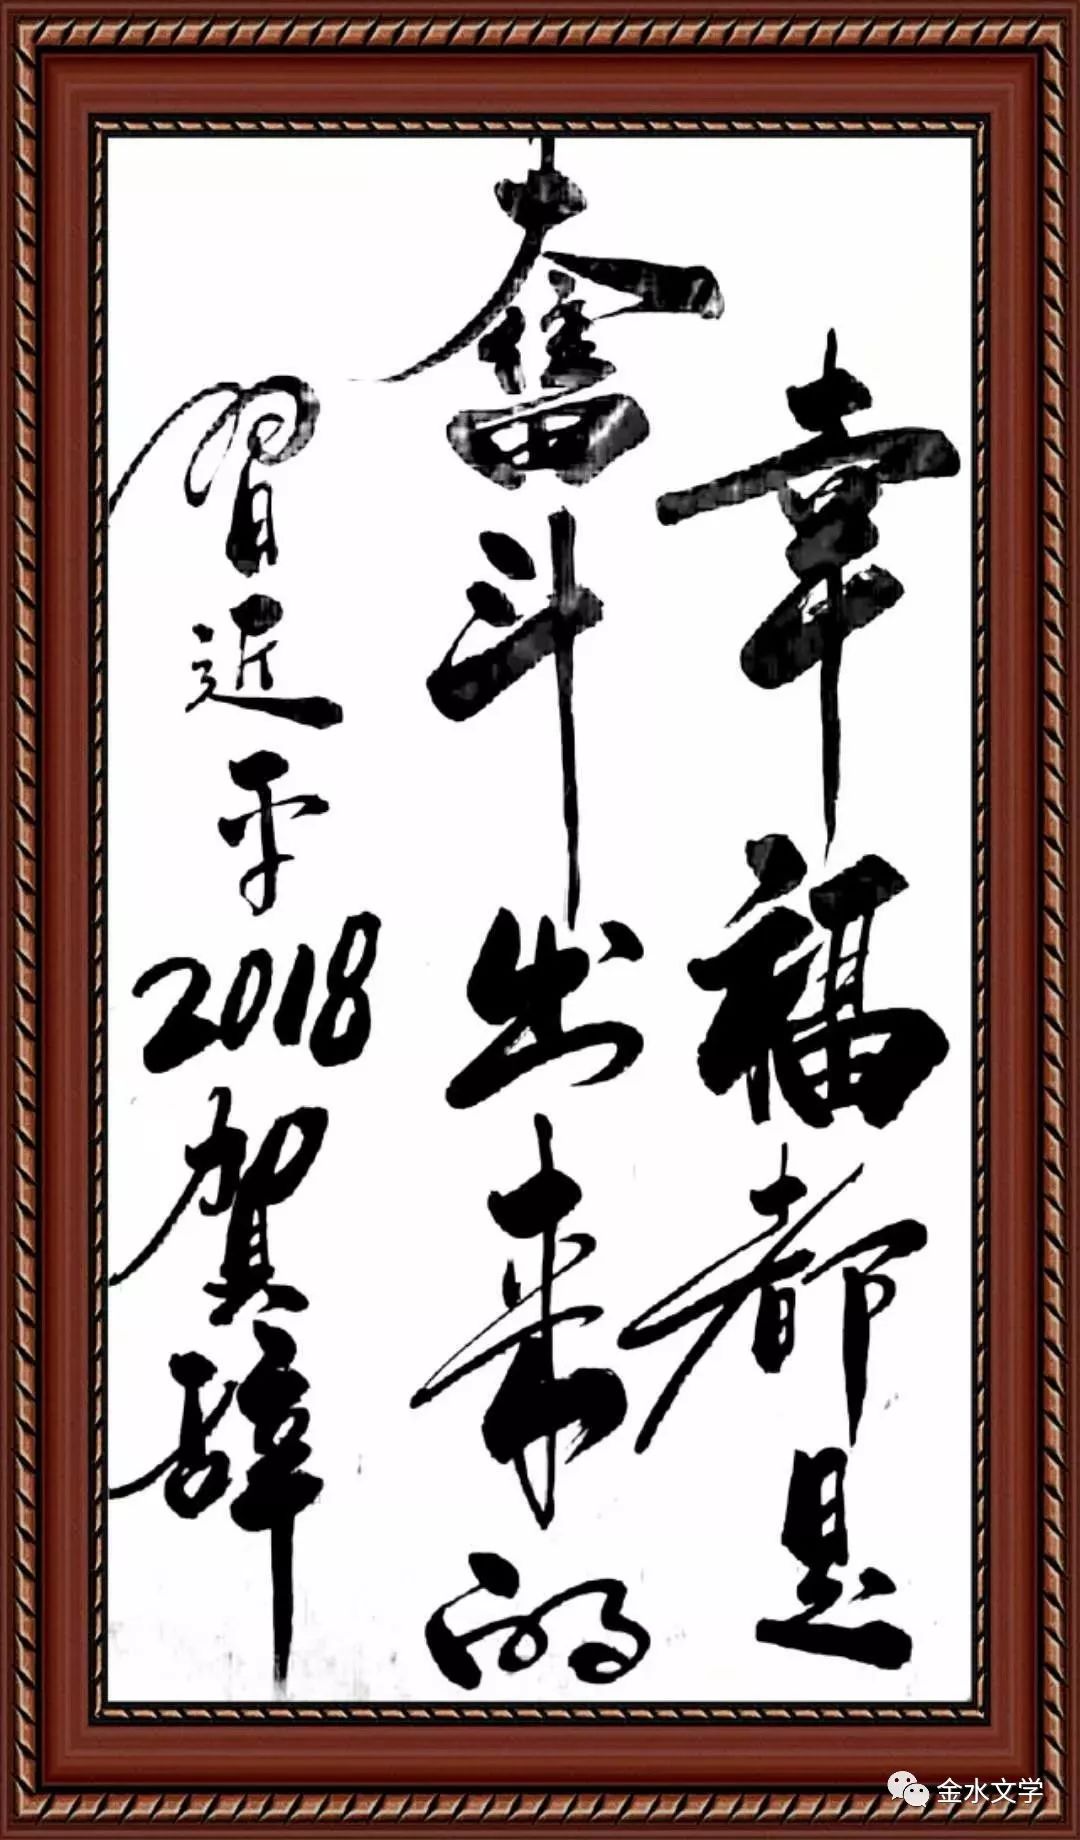 幸福都是
奮斗出来的
習近平2018賀辞
金水文学